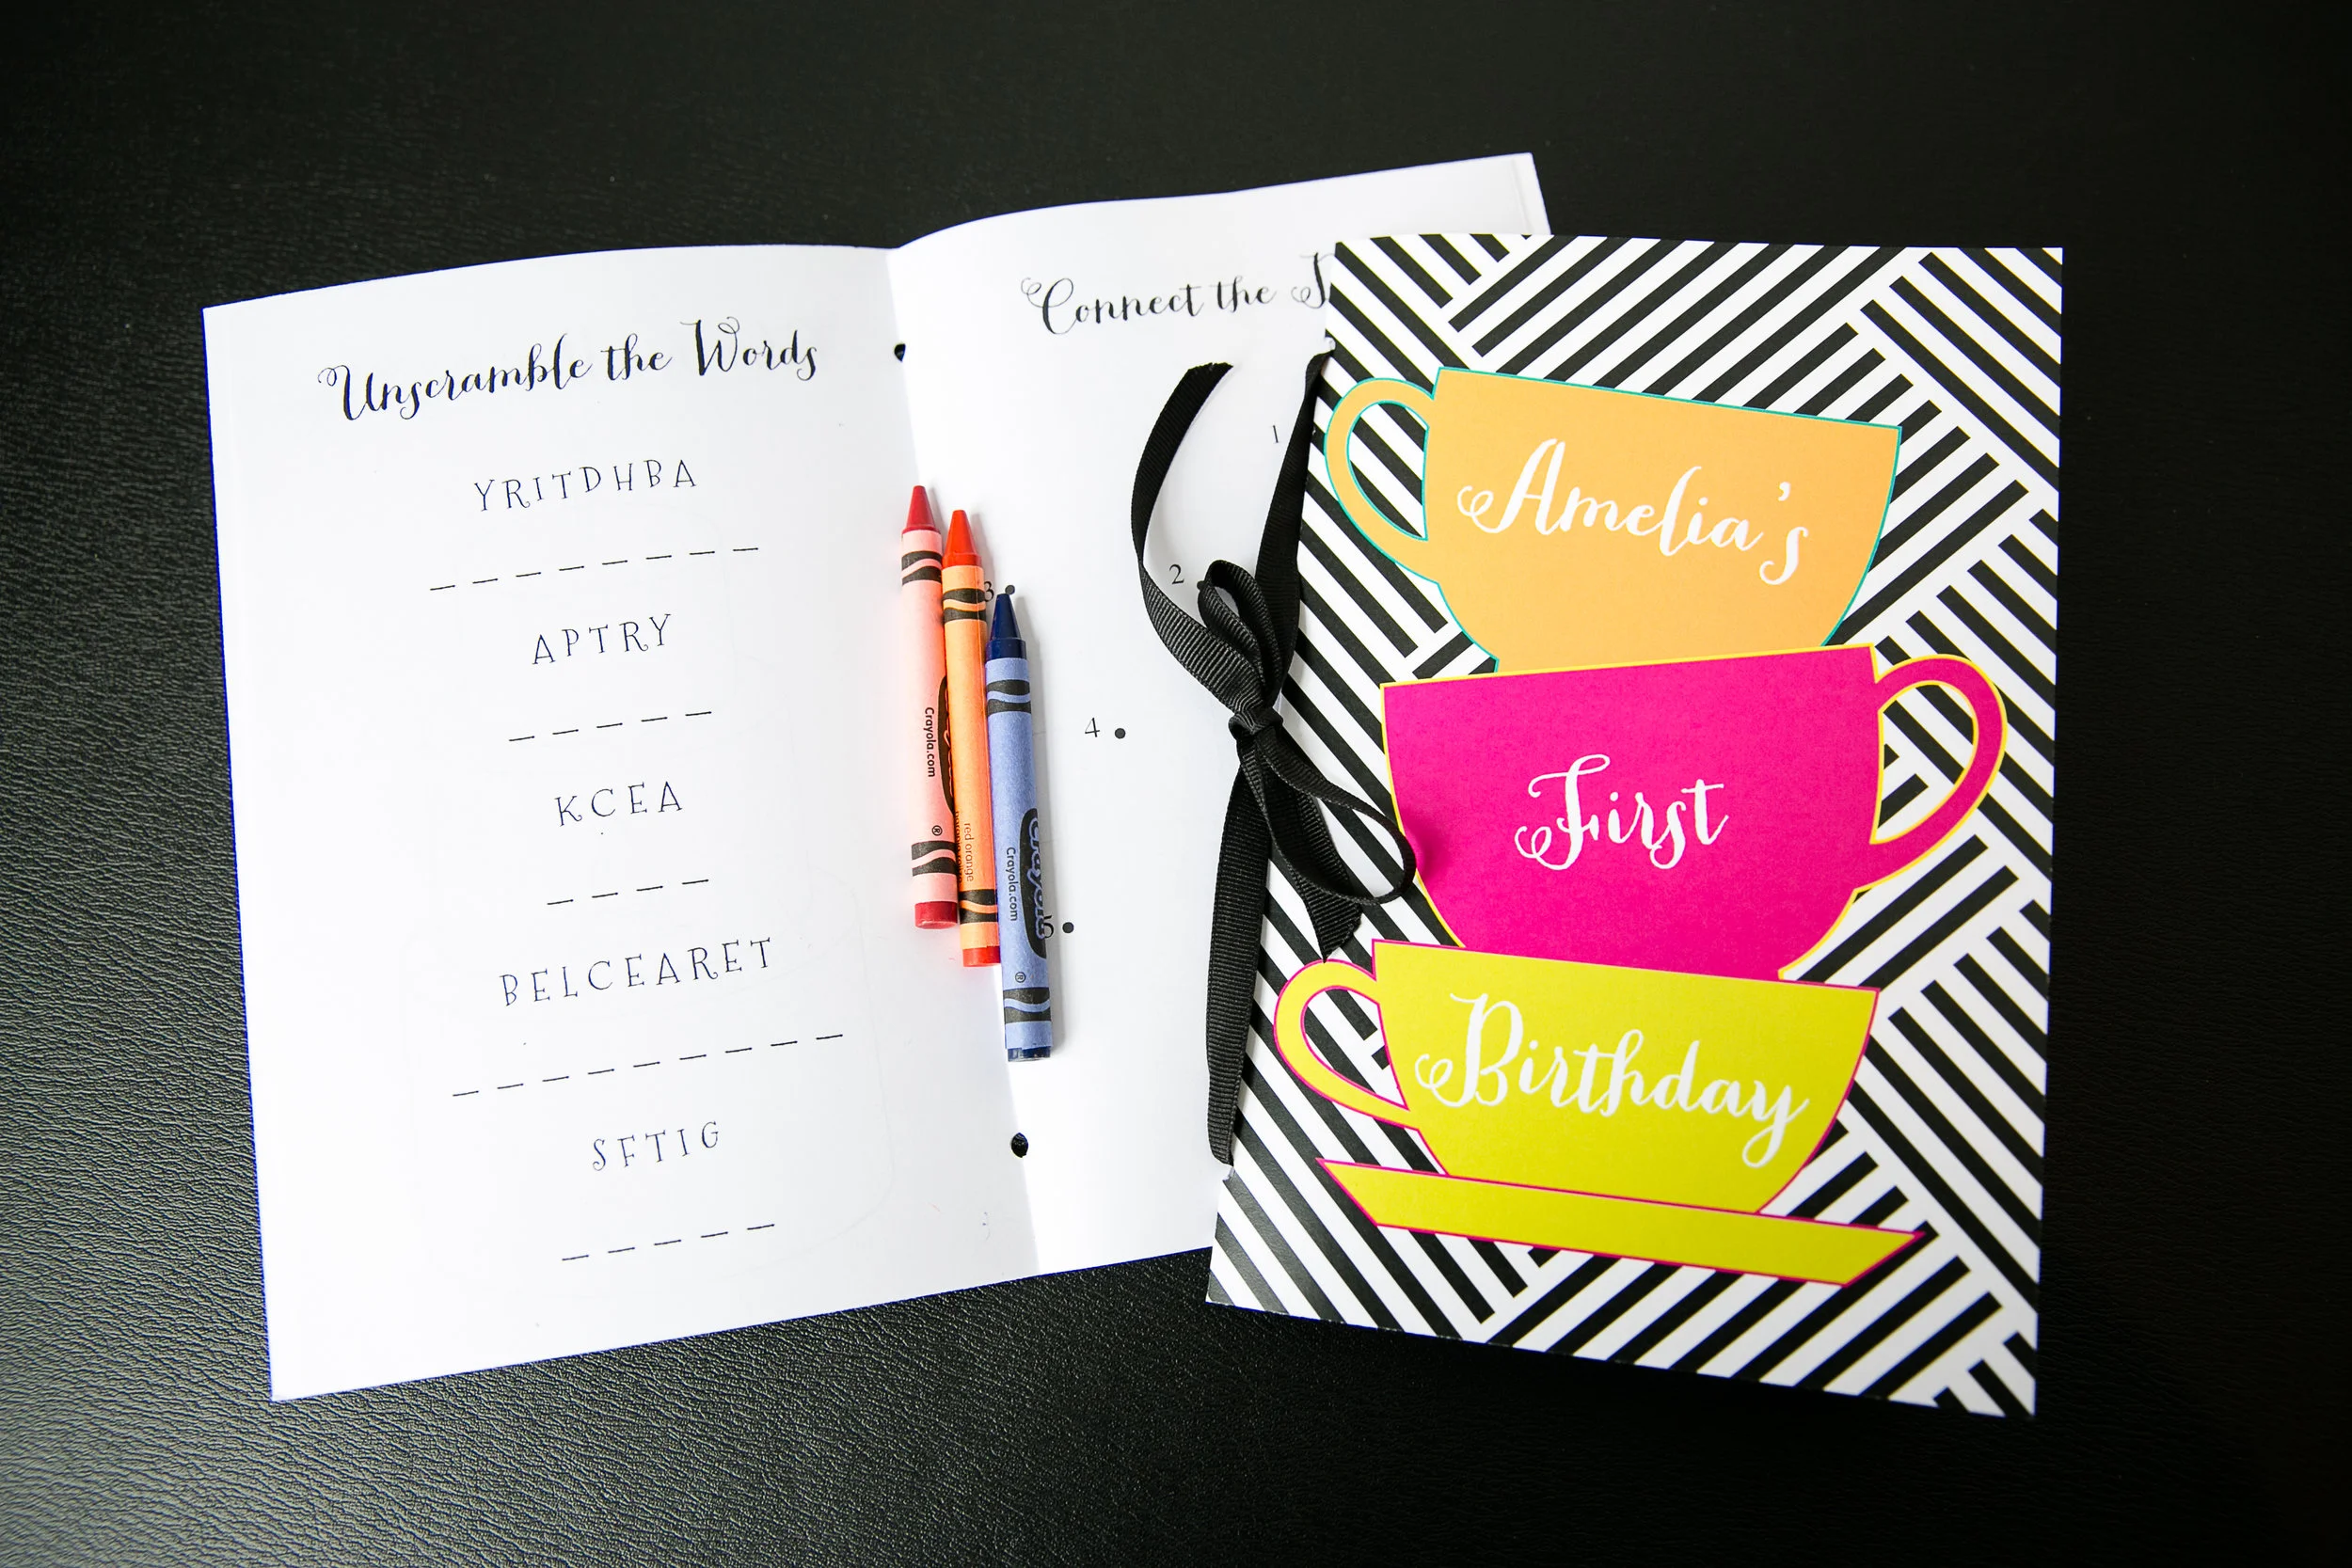 Unscramble the Words
YRITDHBA
APTRY
KCEA
BELCEARET
SFTIG
Connect the
1
2
3
4
Crayola.com
red orange
Crayola
Crayola.com
Amelia's
First
Birthday